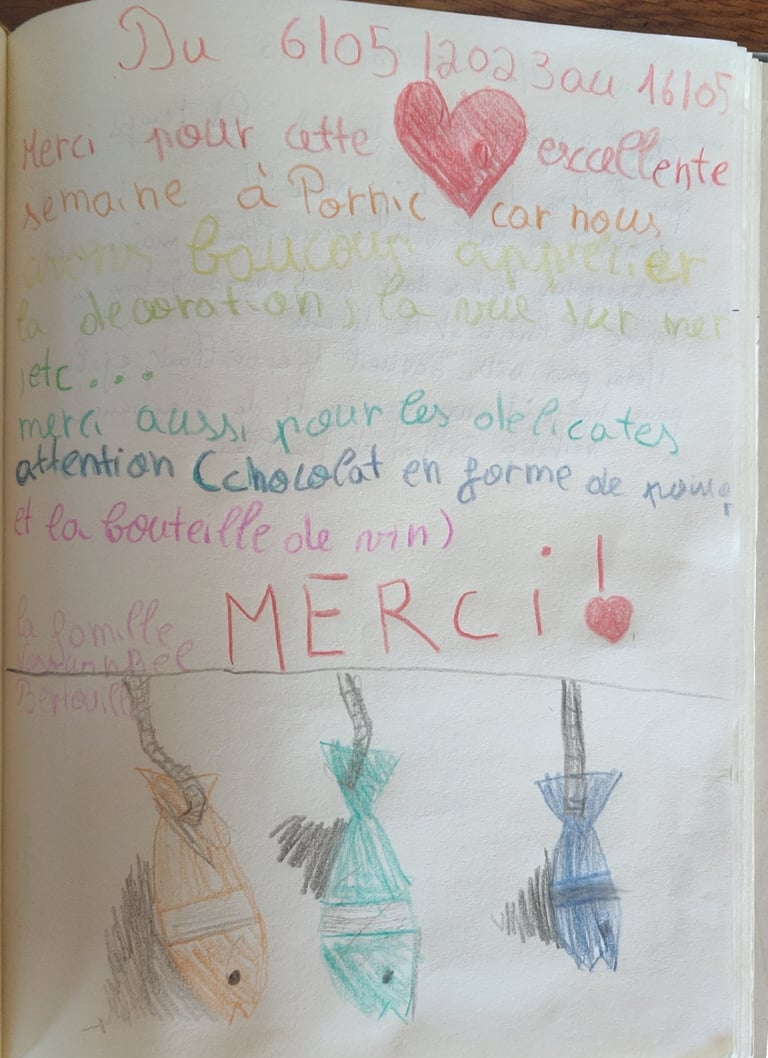 Du 6/05/2023 au 16/05
Merci pour cette excellente
semaine à Pornic car nous
avons baucoup apprécier
la decoration, la vue sur mer
,etc...
merci aussi pour les délicates
attention (chocolat en forme de
et la bouteille de vin)
MERCi!
la famille